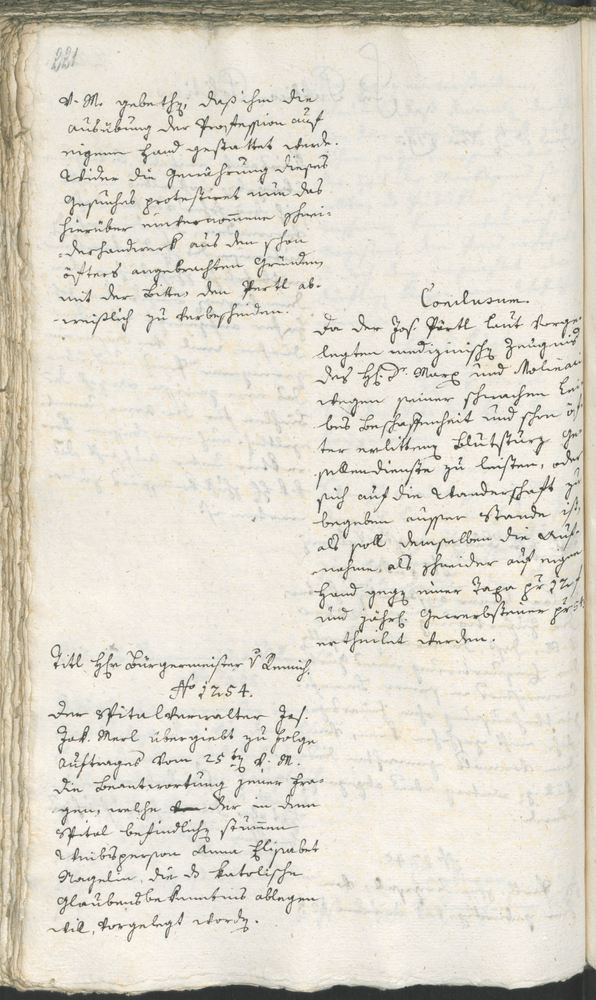 221
v. M. gebethen, daß ihm die
Ausübung der Profession auf
eigene Hand gestattet werde.
Wider die Gewährung dieses
Gesuches protestiret nun das
hierüber vernommene Schnei-
derhandwerk aus den schon
öfters angebrachten Gründen
mit der Bitte, den Pertl ab-
weißlich zu verbescheiden.
Conclusum.
Da der Jos. Pärtl laut vorge-
legten medizinischen Zeugniß
des H. Dr. Marx und Molinari
wegen seiner schwachen Lei-
bes Beschaffenheit und schon öf-
ter erlittenen Blutsturz Ge-
sellendienste zu leisten, oder
sich auf die Wanderschaft zu
begeben ausser Stande ist,
als soll demselben die Auf-
nahme, als Schneider auf eigene
Hand gegen einer Taxa pr 12 f
und jährl. Gewerbsteuer pr
ertheilet werden.
Titl. Hr. Bürgermeister v
No 1254.
Der Spitalverwalter Jos.
Jak. Merl übergiebt zu Folge
Auftrages vom 25ten v. M.
die Beantwortung jener Fra-
gen, welche der in dem
Spital befindlichen stummen
Weibsperson Anna Elisabet
Nagelin, die das katolische
Glaubensbekenntnis ablegen
will, vorgelegt worden.